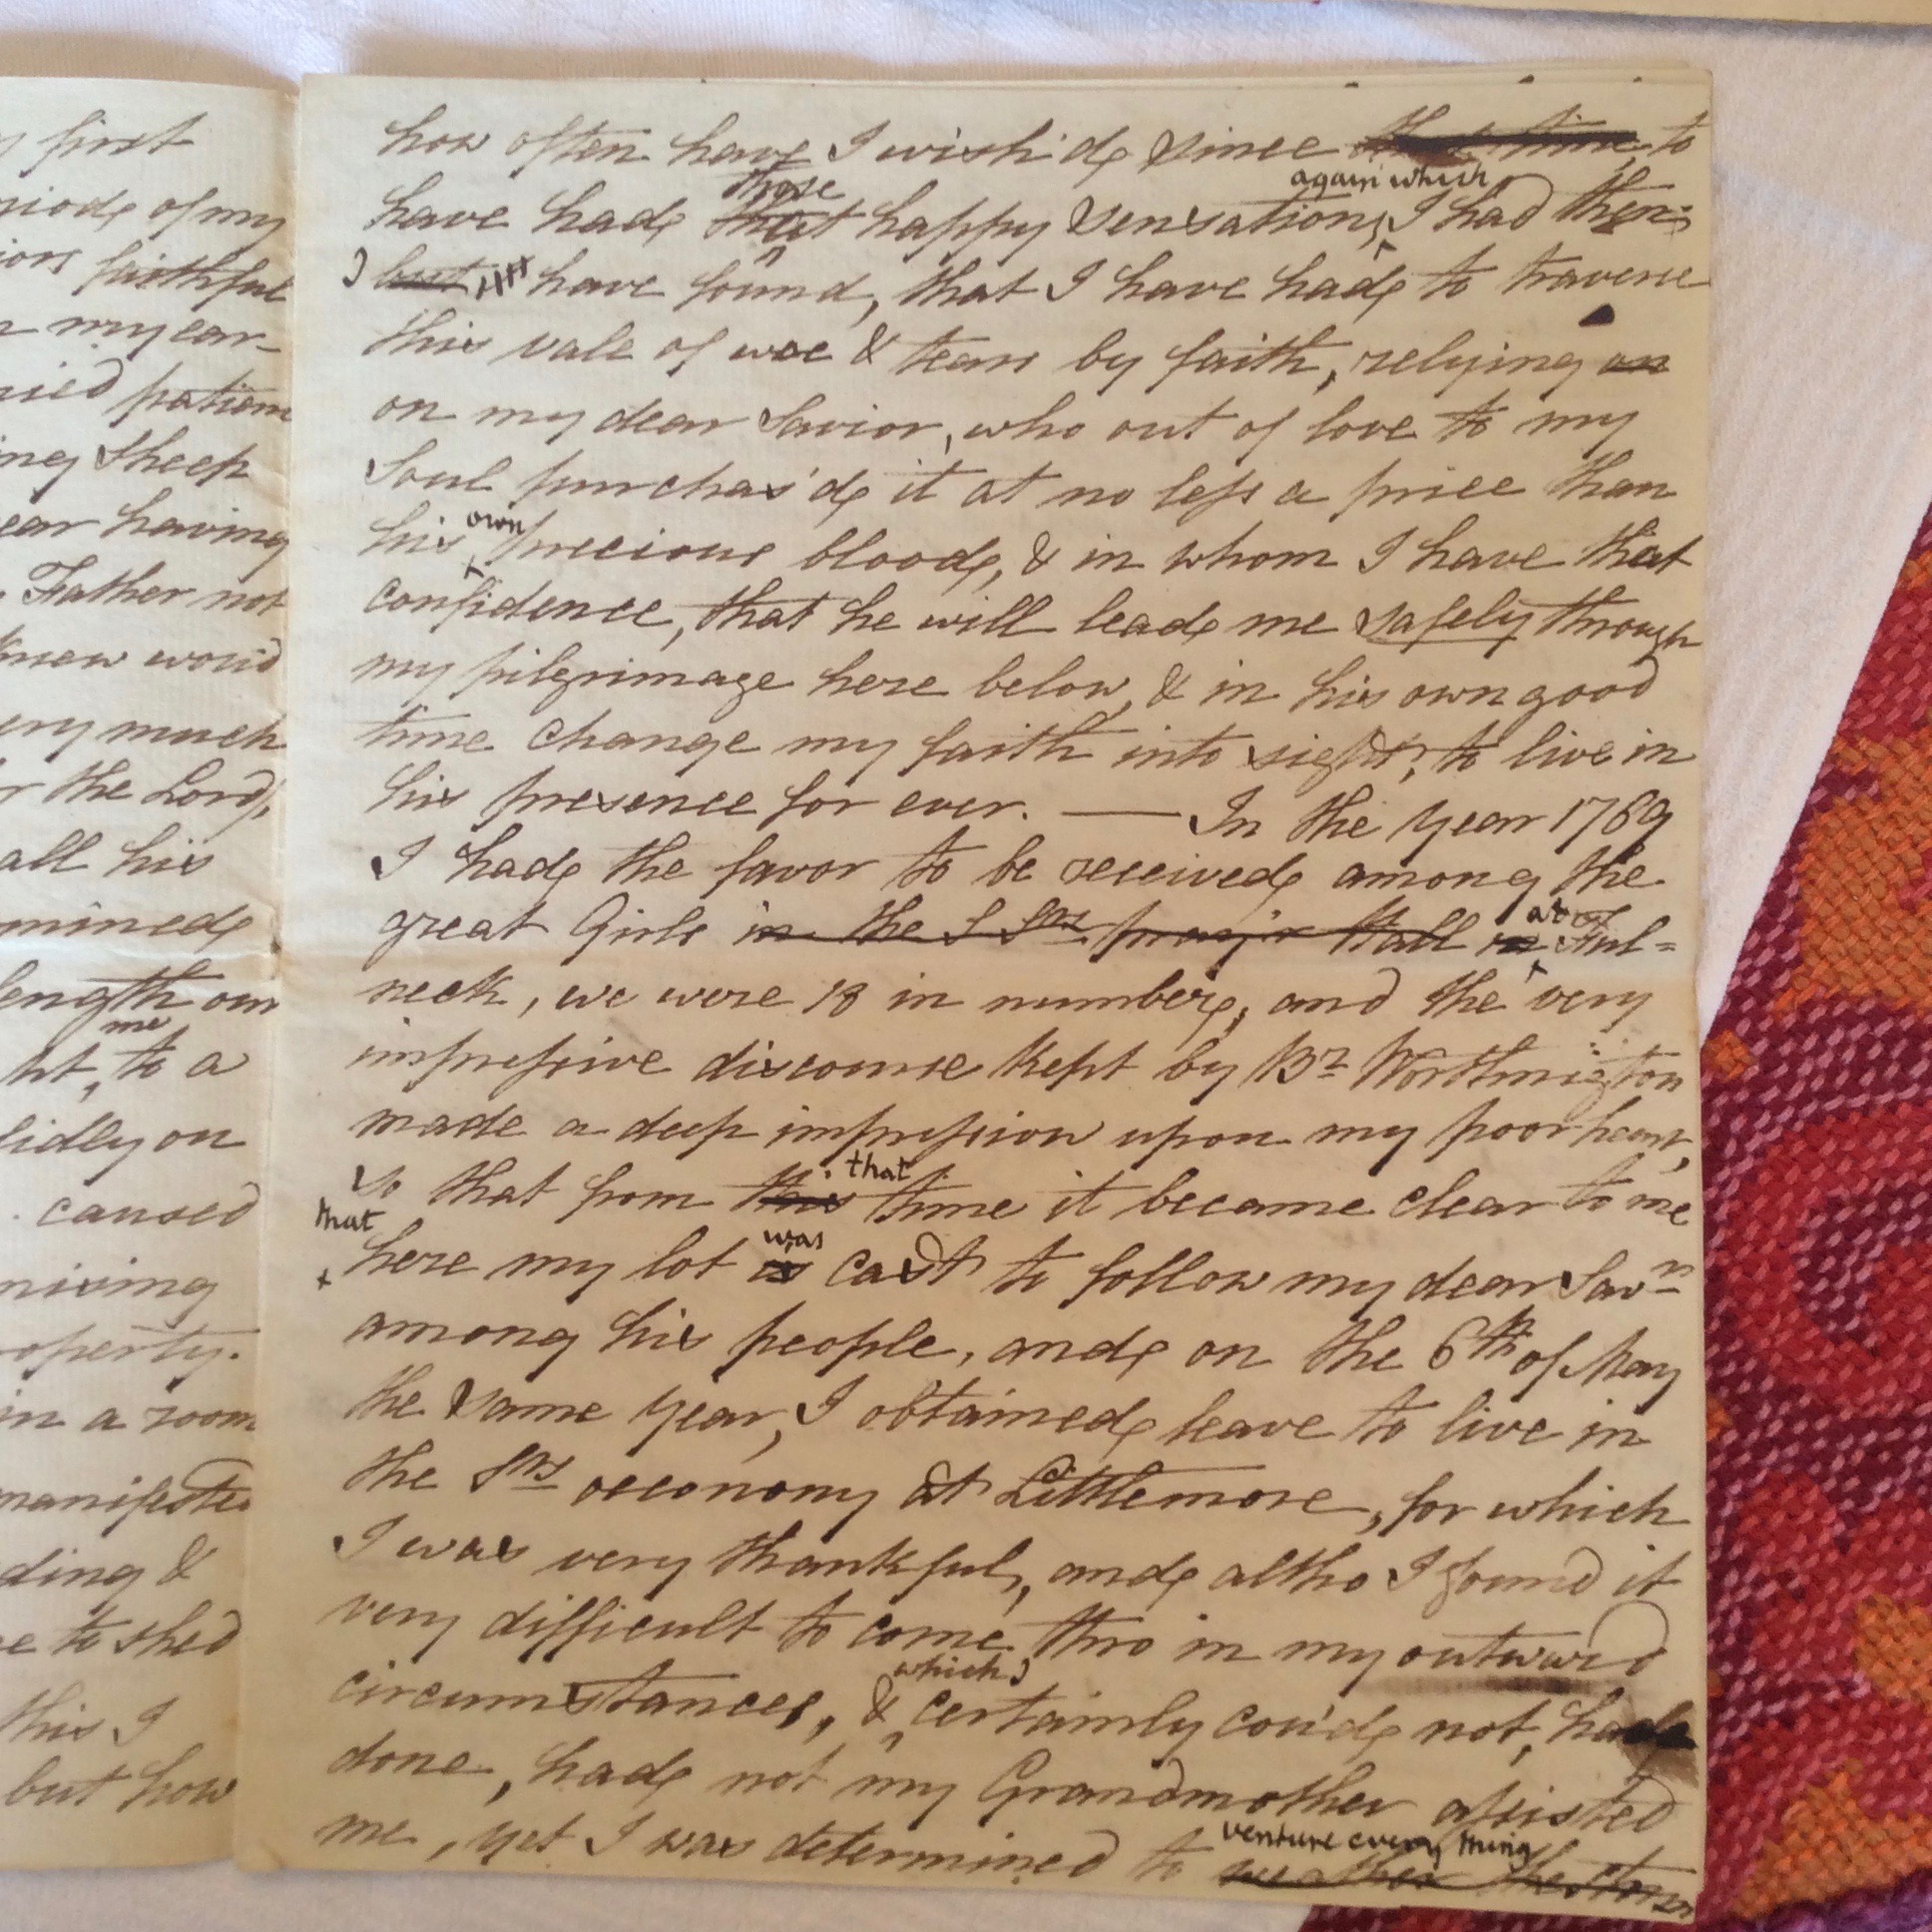 y first
riode of my
iors faithful
n my ear-
ried patienc
ing Sheep
ear having
Father not
knew wou'd
ery much
r the Lord,
all his
mined
length our
ht, me to a
lidly on
caused
mixing
operty.
in a room
manifested
ding &
e to shed
this I
but how
how often have I wish'd since that time to
have had that those happy sensations, again which I had then
I but have found, that I have had to traverse
this vale of woe & tears by faith, relying on
on my dear Savior, who out of love to my
Soul purchas'd it at no less a price than
his own precious blood, & in whom I have that
confidence, that he will lead me safely through
my pilgrimage here below, & in his own good
time change my faith into sight, to live in
his presence for ever. — In the year 1769
I had the favor to be received among the
great Girls in the S Srs. pray'r Hall in at Ful=
neck, we were 18 in number, and the very
impressive discourse kept by Br. Worthington
made a deep impression upon my poor heart,
so that from this that time it became clear to me
that here my lot is was cast to follow my dear Savr.
among his people, and on the 6th of May
the same year, I obtained leave to live in
the Srs oeconomy at Littlemore, for which
I was very thankful, and altho I found it
very difficult to come thro in my outward
circumstances, & which I certainly cou'd not, have
done, had not my Grandmother assisted
me, yet I was determined to venture every thing weather the storm